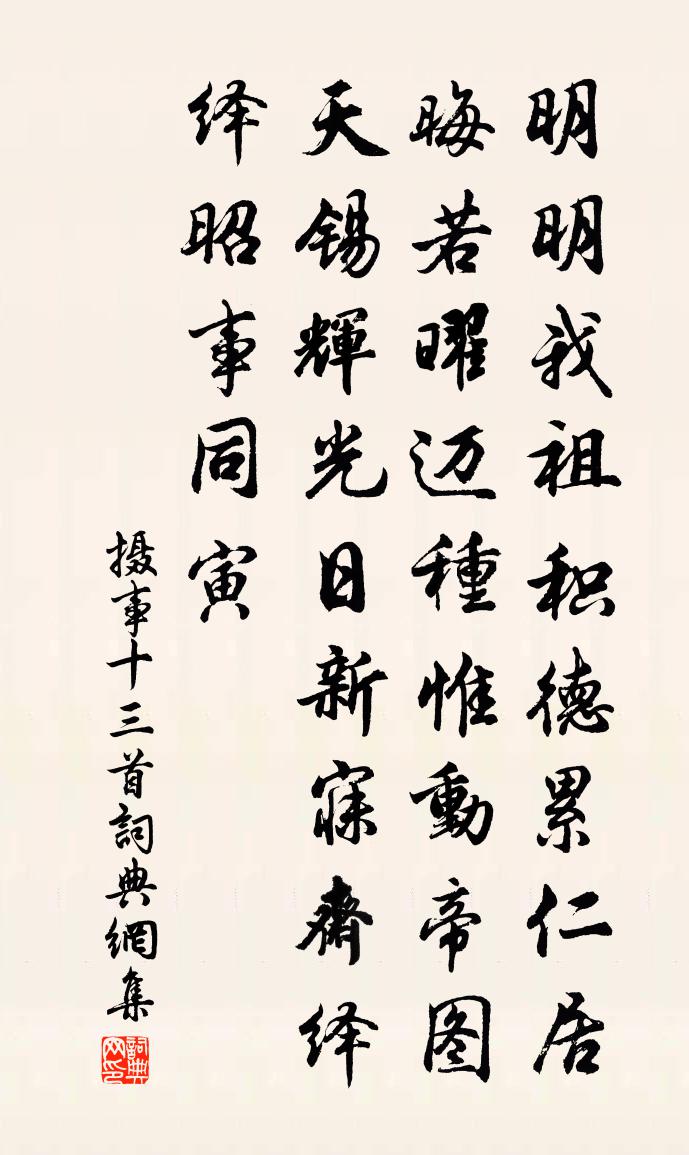 明明我祖积德累仁居
晦若曜迈種惟動帝图
天锡輝光日新寐齋绎
绎昭事同寅
摄事十三首詞典網集
詞典网印